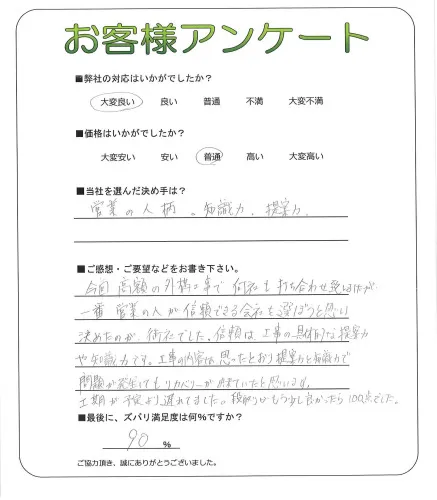 お客様アンケート
■弊社の対応はいかがでしたか？
大変良い 良い 普通 不満 大変不満
■価格はいかがでしたか？
大変安い 安い 普通 高い 大変高い
■当社を選んだ決め手は？
営業の人柄、知識力、提案力
■ご感想・ご要望などをお書き下さい。
今回高額の外構工事で何社も打ち合わせ致しましたが
一番営業の人が信頼できる会社を選ぼうと思い
決めたのが御社でした。信頼は工事の具体的な提案力
や知識力です。工事の内容は思ったとおり提案力と知識力で
問題が発生してもリカバリーが出来ていたと思います。
工期が予定より遅れてました。段取りがもう少し良かったら100点でした。
■最後に、ズバリ満足度は何％ですか？
90 ％
ご協力頂き、誠にありがとうございました。